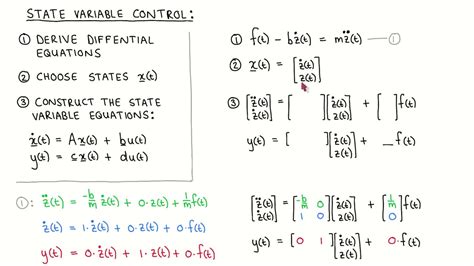 STATE VARIABLE CONTROL:
① DERIVE DIFFENTIAL
EQUATIONS
② CHOOSE STATES x(t)
③ CONSTRUCT THE STATE
VARIABLE EQUATIONS:
ẋ(t) = Ax(t) + bu(t)
y(t) = cx(t) + du(t)
① f(t) - bż(t) = mz̈(t) — ①
② x(t) = [ż(t) z(t)]
③ [z̈(t) ż(t)] = [ ][ż(t) z(t)] + [ ]f(t)
y(t) = [ ][ż(t) z(t)] + _f(t)
①: z̈(t) = -b/m ż(t) + 0·z(t) + 1/m f(t)
ż(t) = 1·ż(t) + 0·z(t) + 0·f(t)
y(t) = 0·ż(t) + 1·z(t) + 0·f(t)
[z̈(t) ż(t)] = [-b/m 0 1 0][ż(t) z(t)] + [1/m 0]f(t)
y(t) = [0 1][ż(t) z(t)] + 0·f(t)